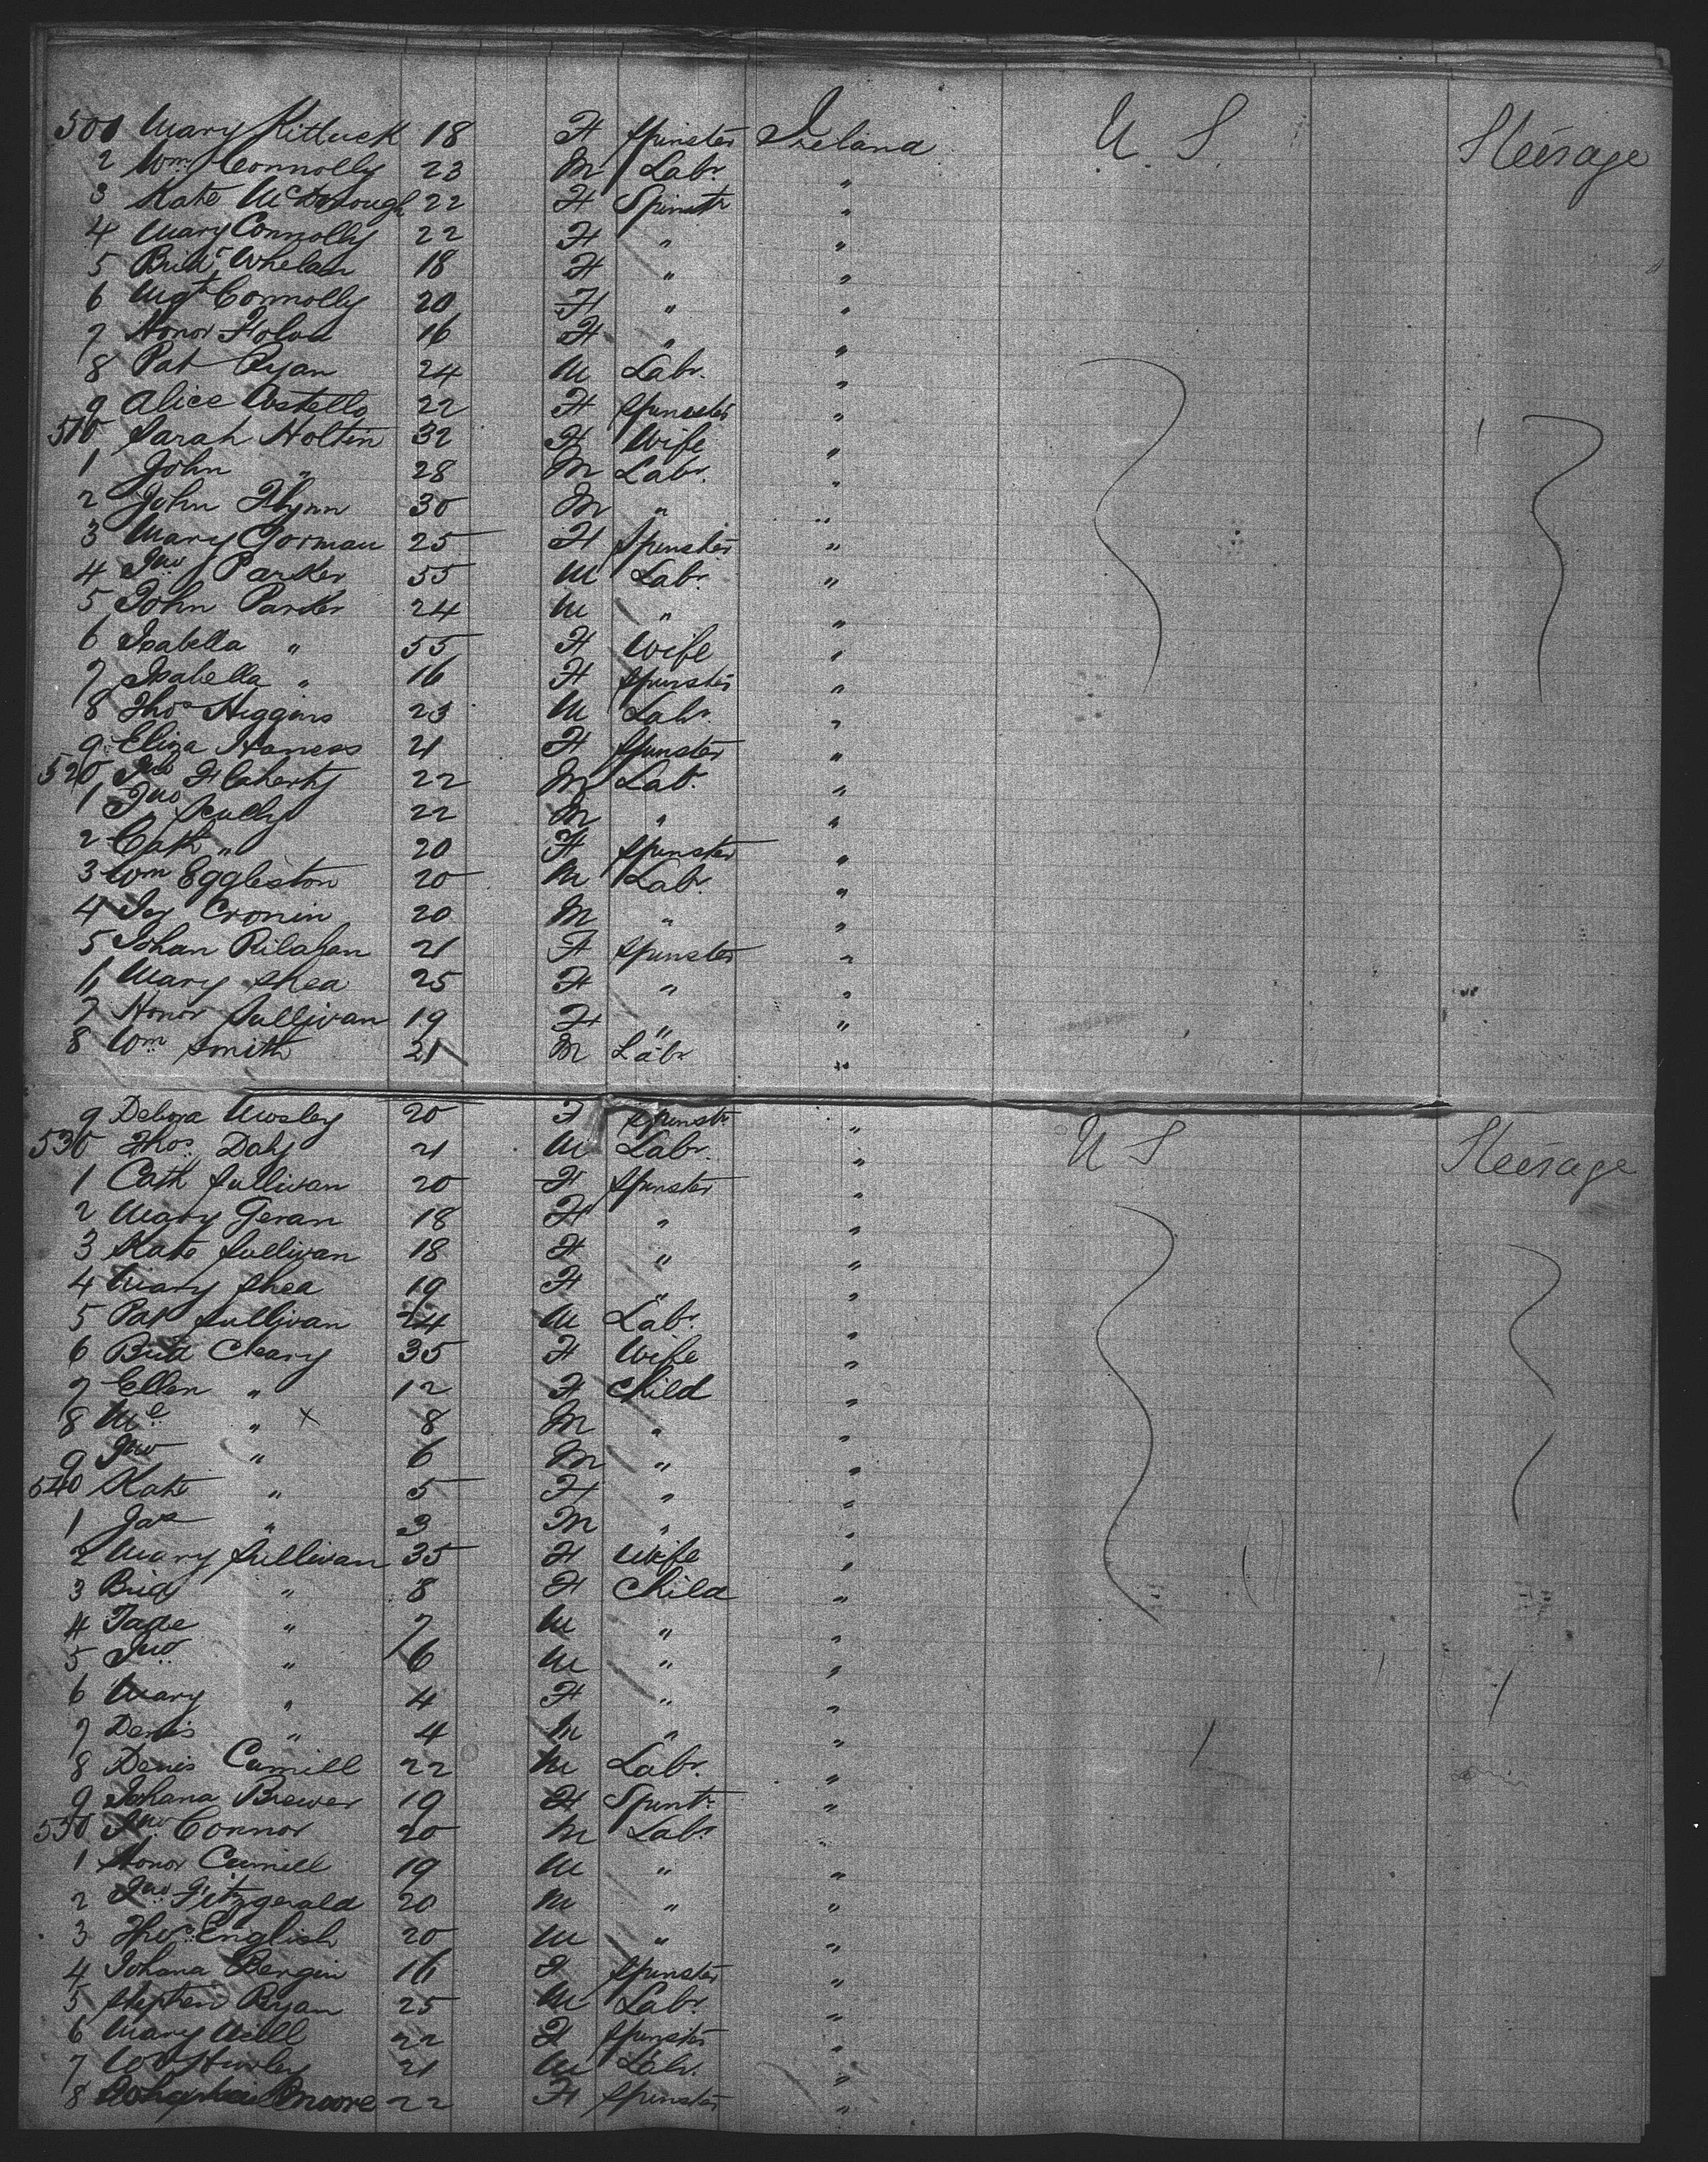 501 Mary Kittuck 18 F Spinster Ireland U. S. Steerage
2 Wm Connolly 23 M Labr. "
3 Kate McDonough 22 F Spinstr "
4 Mary Connolly 22 F " "
5 Brid Whelan 18 F " "
6 Mgt Connolly 20 F " "
7 Honor 16 F " "
8 Pat Ryan 24 M Labr. "
9 Alice Costello 22 F Spinster "
510 Sarah Holtin 32 F Wife "
1 John " 28 M Labr. "
2 John Flynn 30 M " "
3 Mary Gorman 25 F Spinster "
4 Jno Parker 55 M Labr. "
5 John Parker 24 M " "
6 Isabella " 55 F Wife "
7 Isabella " 16 F Spinster "
8 Thos Higgins 23 M Labr. "
9 Eliza 21 F Spinster "
520 Flaherty 22 M Labr. "
1 Jno Scully 22 M " "
2 Cath " 20 F Spinster "
3 Wm Eggleston 20 M Labr. "
4 Cronin 20 M " "
5 Johan 21 F Spinster "
6 Mary Shea 25 F " "
7 Honor Sullivan 19 F " "
8 Wm Smith 21 M Labr "
9 Debora Mosley 20 F Spinstr "
530 Thos. Daly 21 M Labr. " U S Steerage
1 Cath Sullivan 20 F Spinster "
2 Mary Geran 18 F " "
3 Kate Sullivan 18 F " "
4 Mary Shea 19 F " "
5 Pat Sullivan 24 M Labr. "
6 Brid Cleary 35 F Wife "
7 Ellen " 12 F Child "
8 Ml " x 8 M " "
9 Jno " 6 M " "
540 Kate " 5 F " "
1 Jas " 3 M " "
2 Mary Sullivan 35 F Wife "
3 Brid " 8 F Child "
4 Tade " 7 M " "
5 Jno " 6 M " "
6 Mary " 4 F " "
7 Denis " 4 M " "
8 Denis 22 M Labr. "
9 Johana Brewer 19 F Spinstr "
550 Jno Connor 20 M Labr "
1 Honor 19 M " "
2 Jno Fitzgerald 20 M " "
3 Thos. English 20 M " "
4 Johana Bergin 16 F Spinster "
5 Stephen Ryan 25 M Labr. "
6 Mary 22 F Spinster "
7 Hurley 21 M Labr. "
8 Moore 22 F Spinster "